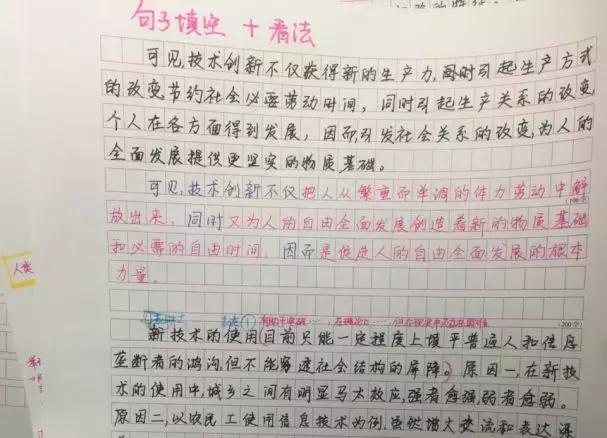 句子填空 + 看法
可见,技术创新不仅获得新的生产力,同时引起生产方式
的改变,节约社会必要劳动时间,同时引起生产关系的改变,
个人在各方面得到发展,因而引发社会关系的改变,为人的
全面发展提供更坚实的物质基础。
可见,技术创新不仅把人从繁重而单调的体力劳动中解
(100字)
放出来,同时又为人的自由全面发展创造着新的物质基础
和必需的自由时间,因而是促进人的自由全面发展的根本
力量。
人类
(200字)
新技术的使用目前只能一定程度上填平普通人和信息
垄断者的鸿沟,但不能穿透社会结构的屏障。原因一,在新技
术的使用中,城乡之间有明显马太效应,强者愈强,弱者愈弱。
原因二,以农民工使用信息技术为例,虽然增大交流和表达